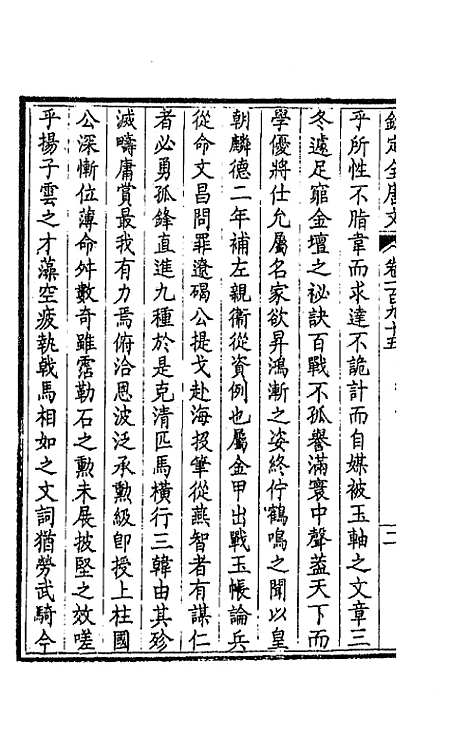 欽定全唐文 卷一百九十五 二
乎所性不脂韋而求達不詭計而自媒被玉軸之文章三
冬遽足窺金壇之祕訣百戰不孤譽滿寰中聲蓋天下而
學優將仕允屬名家欲昇鴻漸之姿終佇鶴鳴之聞以皇
朝麟德二年補左親衞從資例也屬金甲出戰玉帳論兵
從命文昌問罪遼碣公提戈赴海投筆從燕智者有謀仁
者必勇孤鋒直進九種於是克清匹馬橫行三韓由其殄
滅疇庸賞最我有力焉俯洽恩波泛承勲級卽授上柱國
公深慚位薄命舛數奇雖霑勒石之勲未展披堅之效嗟
乎揚子雲之才藻空疲執戟馬相如之文詞猶勞武騎今